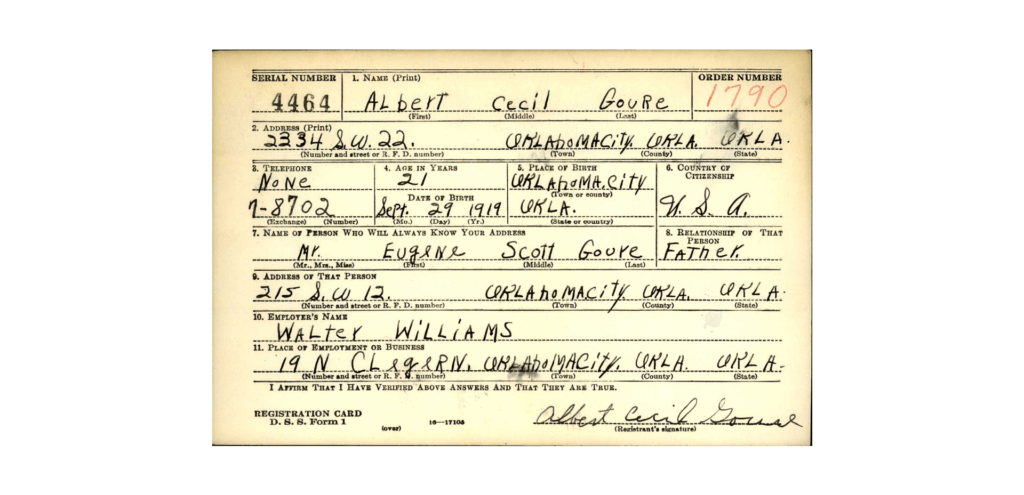 SERIAL NUMBER 1. NAME (Print) ORDER NUMBER
4464 ALbert Cecil Goure 1790
(First) (Middle) (Last)
2. ADDRESS (Print)
2334 S.W. 22. OKLAhoMACity. OKLA. OKLA.
(Number and street or R. F. D. number) (Town) (County) (State)
3. TELEPHONE 4. AGE IN YEARS 5. PLACE OF BIRTH 6. COUNTRY OF CITIZENSHIP
NoNe 21 OKLAhoMA.City
DATE OF BIRTH (Town or county)
7-8702 Sept. 29 1919 OKLA. U. S. A.
(Exchange) (Number) (Mo.) (Day) (Yr.) (State or country)
7. NAME OF PERSON WHO WILL ALWAYS KNOW YOUR ADDRESS 8. RELATIONSHIP OF THAT PERSON
Mr. EugeNe Scott Goure FATher.
(Mr., Mrs., Miss) (First) (Middle) (Last)
9. ADDRESS OF THAT PERSON
215 S.W. 12. OKLAhoMA.City. OKLA. OKLA.
(Number and street or R. F. D. number) (Town) (County) (State)
10. EMPLOYER'S NAME
WALter WiLLiAMS
11. PLACE OF EMPLOYMENT OR BUSINESS
19 N CLegeRN. OKLAhoMACity. OKLA. OKLA.
(Number and street or R. F. D. number) (Town) (County) (State)
I AFFIRM THAT I HAVE VERIFIED ABOVE ANSWERS AND THAT THEY ARE TRUE.
REGISTRATION CARD Albert Cecil Goure
D. S. S. Form 1 (over) 16—17105 (Registrant's signature)